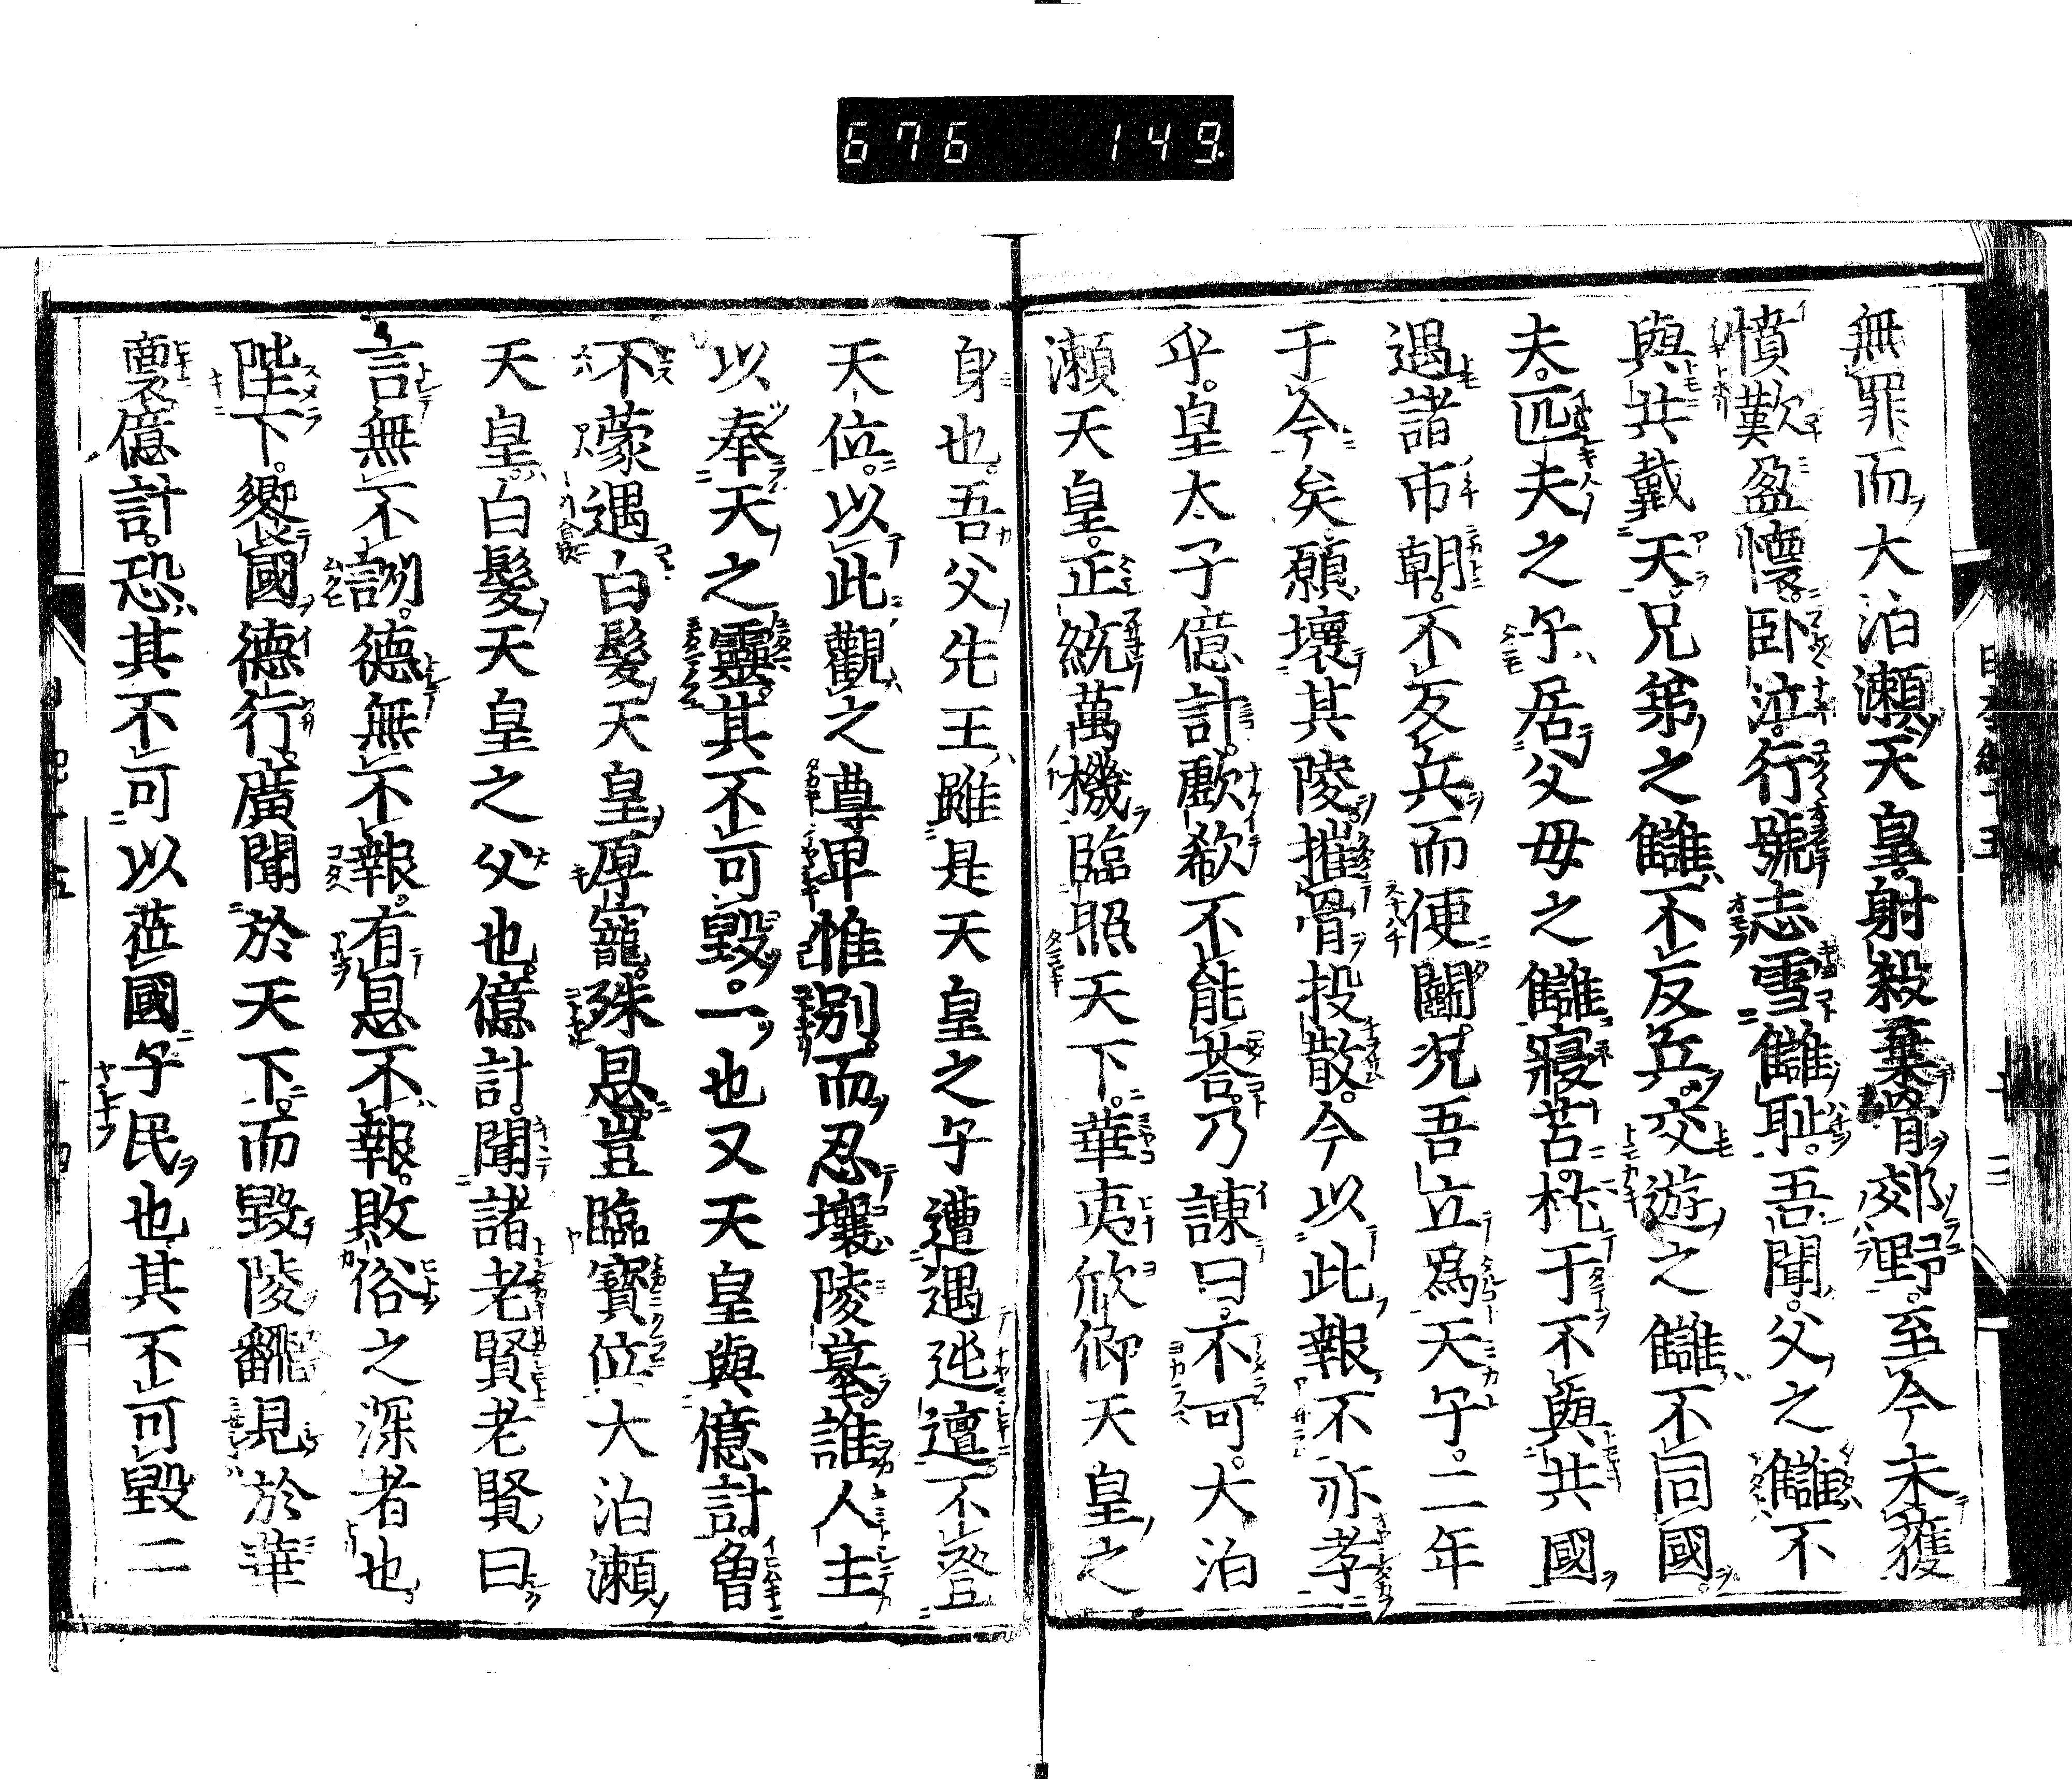 676 149
無罪而大泊瀬天皇射殺棄骨郊野至今未獲
憤歎盈懷臥泣行號志雪讎耻吾聞父之讎不
與共戴天兄弟之讎不反兵交遊之讎不同國
夫匹夫之子居父母之讎寢苫枕干不與共國
遇諸市朝不反兵而便鬭況吾立爲天子二年
于今矣願壞其陵摧骨投散今以此報不亦孝
乎皇太子億計歔欷不能荅乃諌曰不可大泊
瀬天皇正統萬機臨照天下華夷欣仰天皇之
身也吾父先王雖是天皇之子遭遇迍邅不登
天位以此觀之尊卑惟別而忍壞陵墓誰人主
以奉天之靈其不可毀一也又天皇與億計曾
不蒙遇白髮天皇厚寵殊恩豈臨寳位大泊瀬
天皇白髮天皇之父也億計聞諸老賢老賢曰
言無不詶德無不報有恩不報敗俗之深者也
陛下饗國德行廣聞於天下而毀陵翻見於華
裔億計恐其不可以莅國子民也其不可毀二